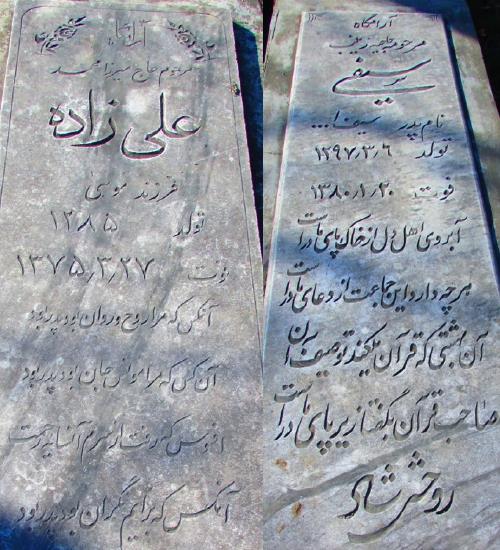 آرامگاه
مرحوم حاج میرزا محمد
علی زاده
فرزند موسی
تولد ۱۲۸۵
فوت ۱۳۷۵٫۳٫۲۷
آنکس که مرا روح و روان بود پدر بود
آن کس که مرا مونس جان بود پدر بود
افسوس که رفت از سرم آن سایه رحمت
آنکس که برایم نگران بود پدر بود
آرامگاه
مرحومه حاجیه
سیفی
نام پدر سیف ا...
تولد ۱۲۹۷٫۳٫۶
فوت ۱۳۸۰٫۱٫۲۰
آبروی اهل دل از خاک پای مادر است
هر چه دارد این جماعت از دعای مادر است
آن بهشتی که قرآن میکند توصیف آن
صاحب قرآن بگفتا زیر پای مادر است
روحش شاد